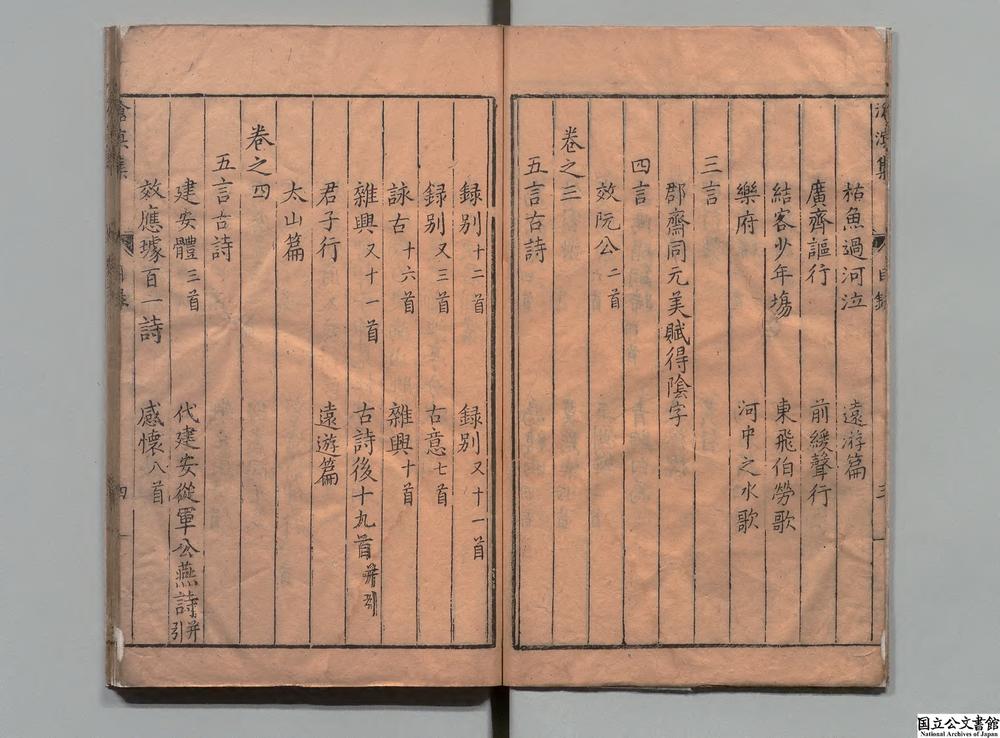 枯魚過河泣　遠游篇
廣齊謳行　前緩聲行
結客少年塲　東飛伯勞歌
樂府　河中之水歌
三言
郡齋同元美賦得陰字
四言
效阮公二首
卷之三
五言古詩
録别十二首　録别又十一首
録别又三首　古意七首
詠古十六首　雜興十首
雜興又十一首　古詩後十九首并引
君子行　遠遊篇
太山篇
卷之四
五言古詩
建安體三首　代建安從軍公燕詩并引
效應璩百一詩　感懷八首
目錄　三
四
国立公文書館
National Archives of Japan